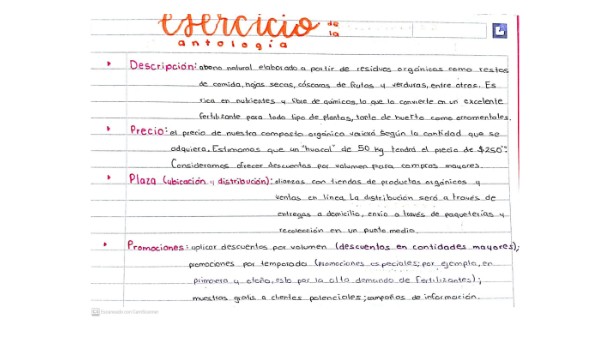 ejercicio de la
antología
• Descripción: abono natural elaborado a partir de residuos orgánicos como restos
de comida, hojas secas, cáscaras de frutas y verduras, entre otros. Es
rica en nutrientes y libre de químicos, lo que la convierte en un excelente
fertilizante para todo tipo de plantas, tanto de huerto como ornamentales.
• Precio: el precio de nuestra composta orgánica variará según la cantidad que se
adquiera. Estimamos que un "huacal" de 50 kg tendrá el precio de $250.
Consideramos ofrecer descuentos por volumen para compras mayores.
• Plaza (ubicación y distribución): alianzas con tiendas de productos orgánicos y
ventas en línea. La distribución será a través de
entregas a domicilio, envío a través de paqueterías y
recolección en un punto medio.
• Promociones: aplicar descuentos por volumen (descuentos en cantidades mayores);
promociones por temporada (promociones especiales; por ejemplo, en
primavera y otoño, esto por la alta demanda de fertilizantes);
muestras gratis a clientes potenciales; campañas de información.
Escaneado con CamScanner